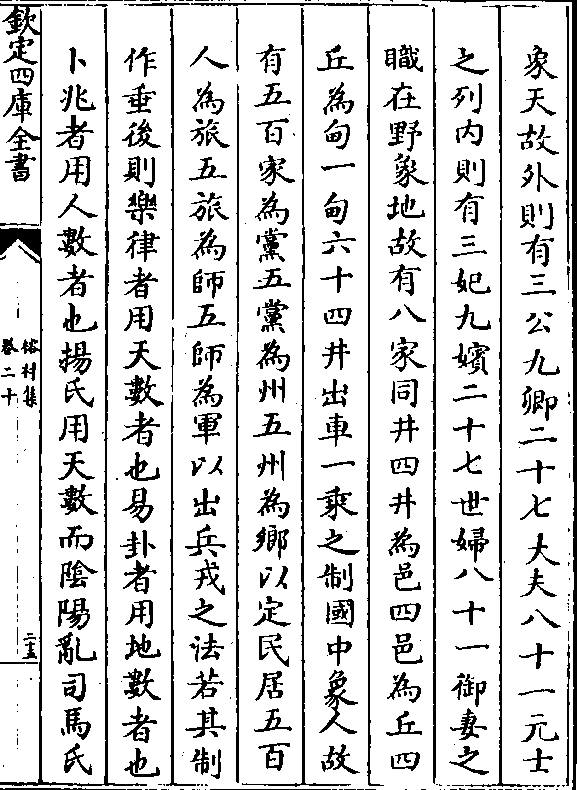 象天故外則有三公九卿二十七大夫八十一元士
之列内則有三妃九嬪二十七世婦八十一御妻之
職在野象地故有八家同井四井為邑四邑為丘四
丘為甸一甸六十四井出車一乘之制國中象人故
有五百家為黨五黨為州五州為鄉以定民居五百
人為旅五旅為師五師為軍以出兵戎之法若其制
作垂後則樂律者用天數者也易卦者用地數者也
卜兆者用人數者也揚氏用天數而陰陽亂司馬氏
欽定四庫全書
榕村集
卷二十
二十五